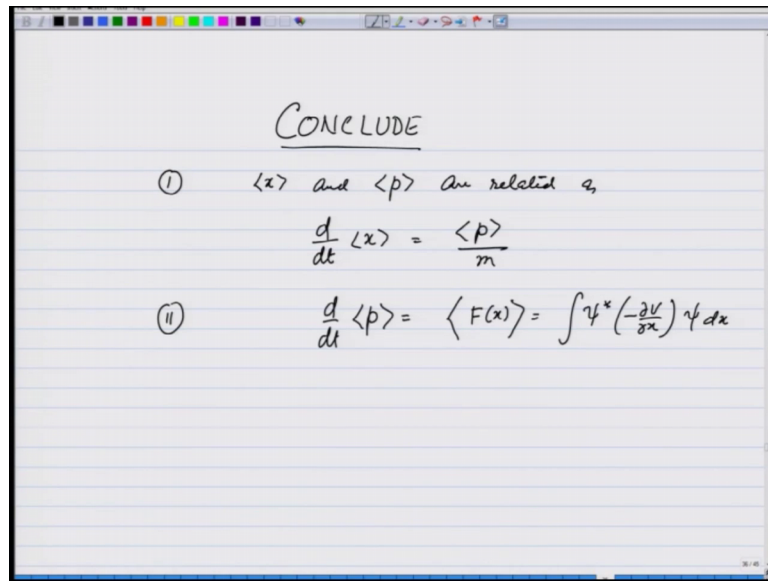 CONCLUDE
① <x> and <p> are related as
d/dt <x> = <p>/m
② d/dt <p> = <F(x)> = ∫ψ* (-∂V/∂x) ψ dx
36/40